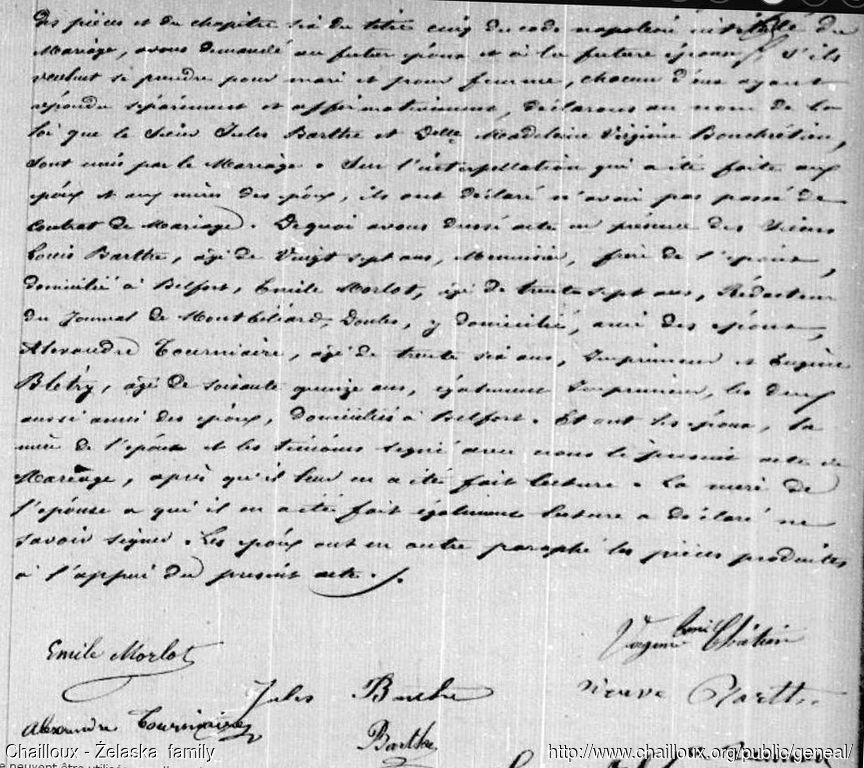 des pièces et du chapitre six du titre cinq du code napoléon intitulé du
Mariage, avons demandé au futur époux et à la future épouse s'ils
veulent se prendre pour mari et pour femme, chacun d'eux ayant
répondu séparément et affirmativement, déclarons au nom de la
loi que le Sieur Jules Barthe et Delle Madeleine Virginie Bonchrétien,
sont unis par le Mariage. Sur l'interpellation qui a été faite aux
époux et aux mères des époux, ils ont déclaré n'avoir pas passé de
Contrat de Mariage. De quoi avons dressé acte en présence des Sieurs
Louis Barthe, âgé de Vingt sept ans, Menuisier, frère de l'époux,
domicilié à Belfort, Emile Morlot, âgé de trente sept ans, Rédacteur
du Journal de Montbéliard, Doubs, y domicilié, ami des époux,
Alexandre Tournaire, âgé de trente six ans, Imprimeur et Eugène
Blétry, âgé de soixante quinze ans, également Imprimeur, les deux
aussi amis des époux, domiciliés à Belfort. Et ont les époux, la
mère de l'époux et les témoins signé avec nous le présent acte de
Mariage, après qu'il leur en a été fait lecture. La mère de
l'épouse a qui il en a été fait également lecture a déclaré ne
savoir signer. Les époux ont en outre paraphé les pièces produites
à l'appui du présent acte.
Virginie
Emile Morlot
Jules Barthe
veuve Barthe
Alexandre Tournaire
Barthe
Chailloux - Żelaska family
http://www.chailloux.org/public/geneal/